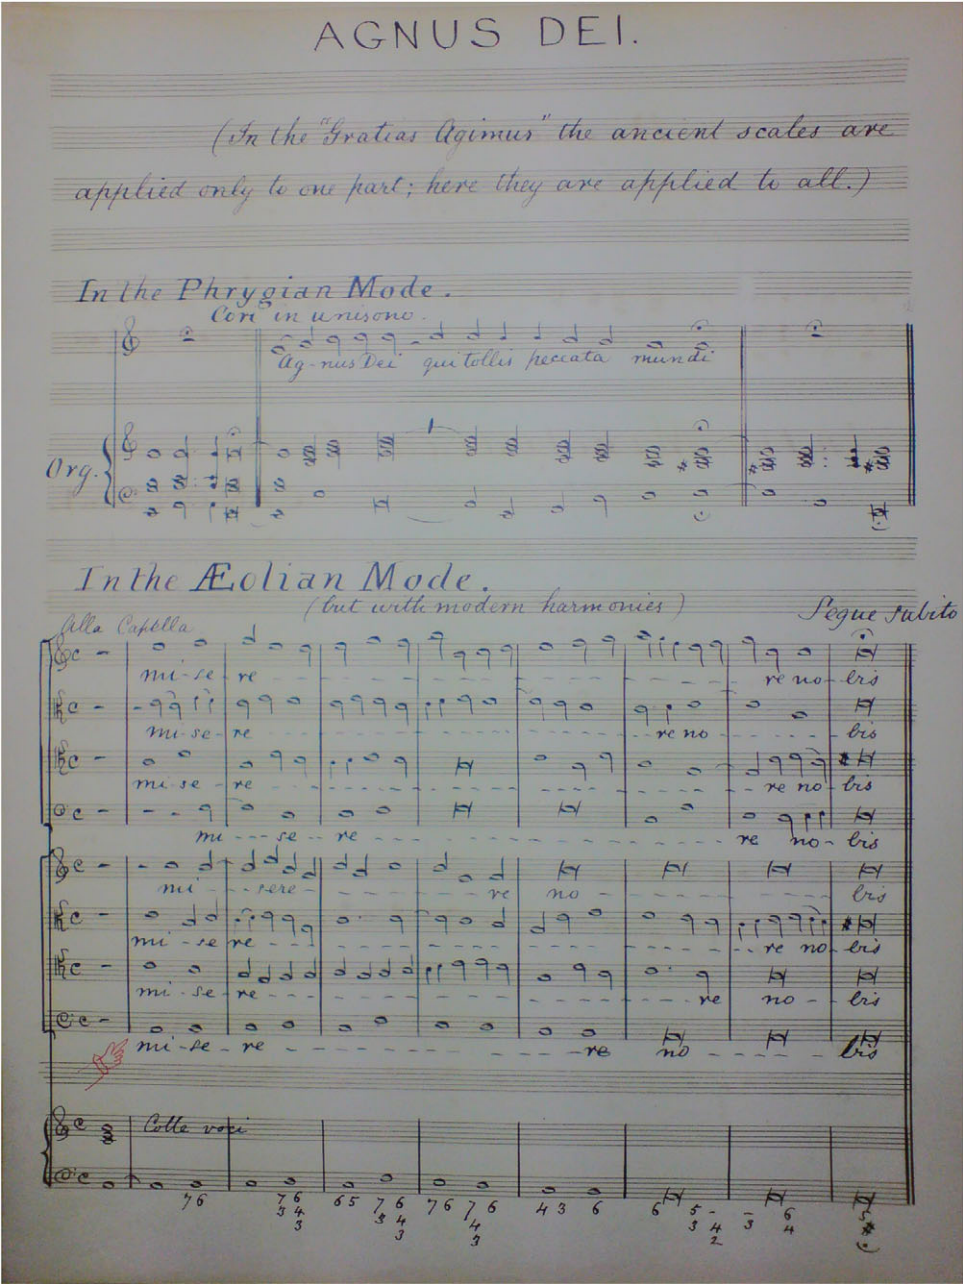 AGNUS DEI.
(In the "Gratias Agimus" the ancient scales are
applied only to one part; here they are applied to all.)
In the Phrygian Mode.
Cori in unisono.
Ag-nus Dei qui tollis peccata mundi
Org.
In the ÆOlian Mode.
(but with modern harmonies)
Segue subito
Alla Capella
mi-se-re re no-bis
mi-se-re re no bis
mi-se-re re no-bis
mi---se--re re no-bis
mi---sere- re no- bis
mi--se re re no-bis
mi-se-re re no--bis
mi-se-re re no bis
Colle voci
7 6 7 6 6 5 7 6 7 6 7 6 4 3 6 6 5 - - 6 5
3 4 3 4 4 3 4 3 4 #
3 3 3 2